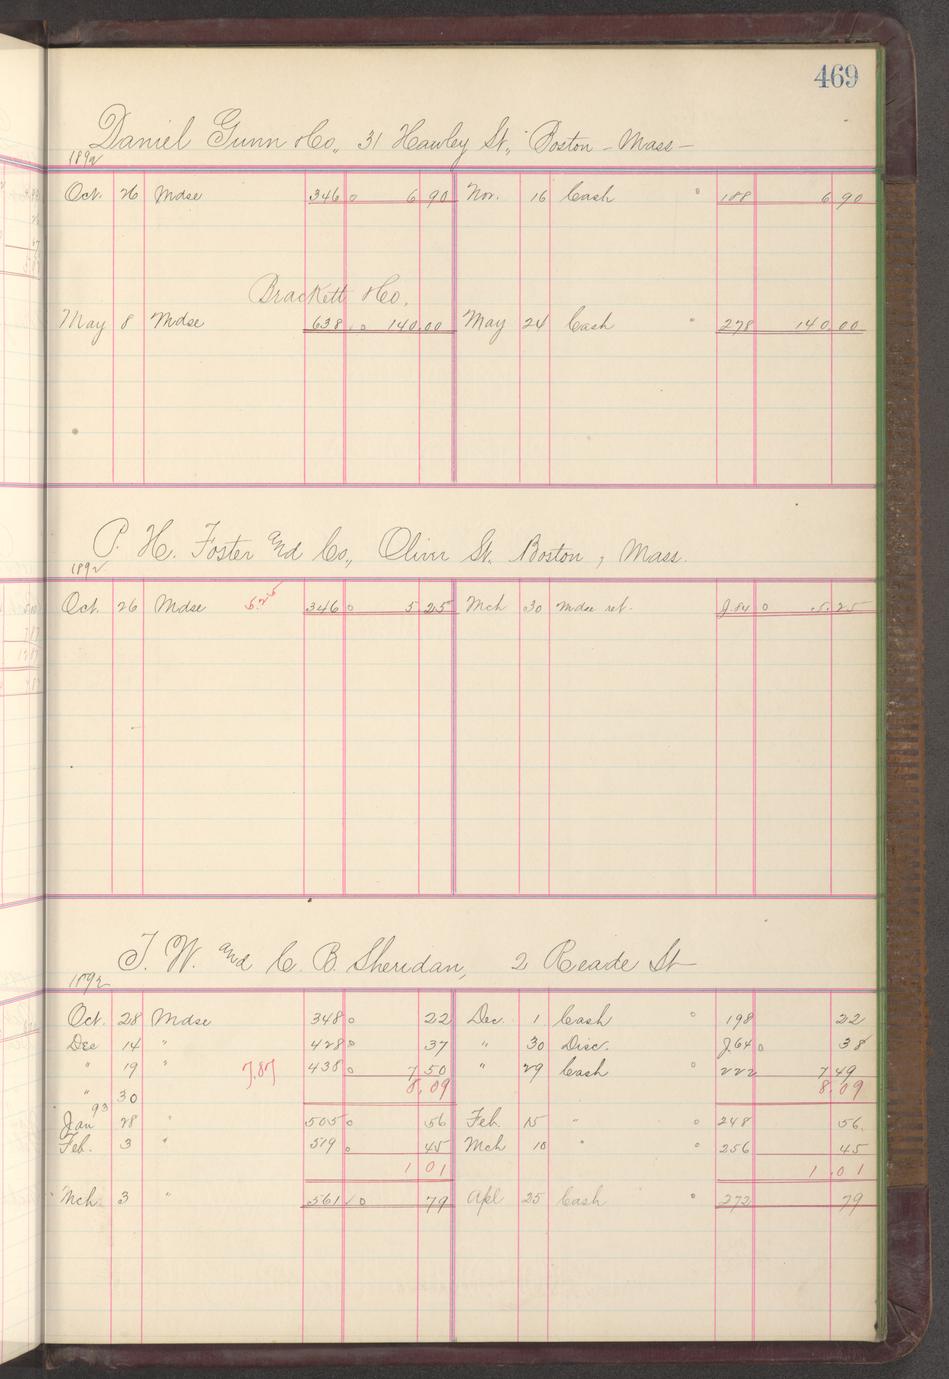 469
Daniel Gunn & Co., 31 Hawley St., Boston - Mass -
1892
Oct. 26 Mdse 346 6 90 Nov. 16 Cash 188 6 90
Brackett & Co.
May 8 Mdse 638 140.00 May 24 Cash 278 140.00
P. H. Foster and Co., Oliver St. Boston, Mass.
1892
Oct. 26 Mdse 5.25 346 5 25 Mch 30 Mdse ret. J.84 5.25
T. W. and C. B. Sheridan, 2 Reade St
1892
Oct. 28 Mdse 348 22 Dec. 1 Cash 198 22
Dec 14 " 428 37 " 30 Disc. J.64 38
" 19 " 7.87 438 7 50 " 29 Cash 222 7 49
" 30 8,09 8.09
93
Jan 28 " 505 56 Feb. 15 " 248 56.
Feb. 3 " 519 45 Mch 10 " 256 45
1 01 1.01
Mch. 3 " 561 79 Apl 25 Cash 272 79